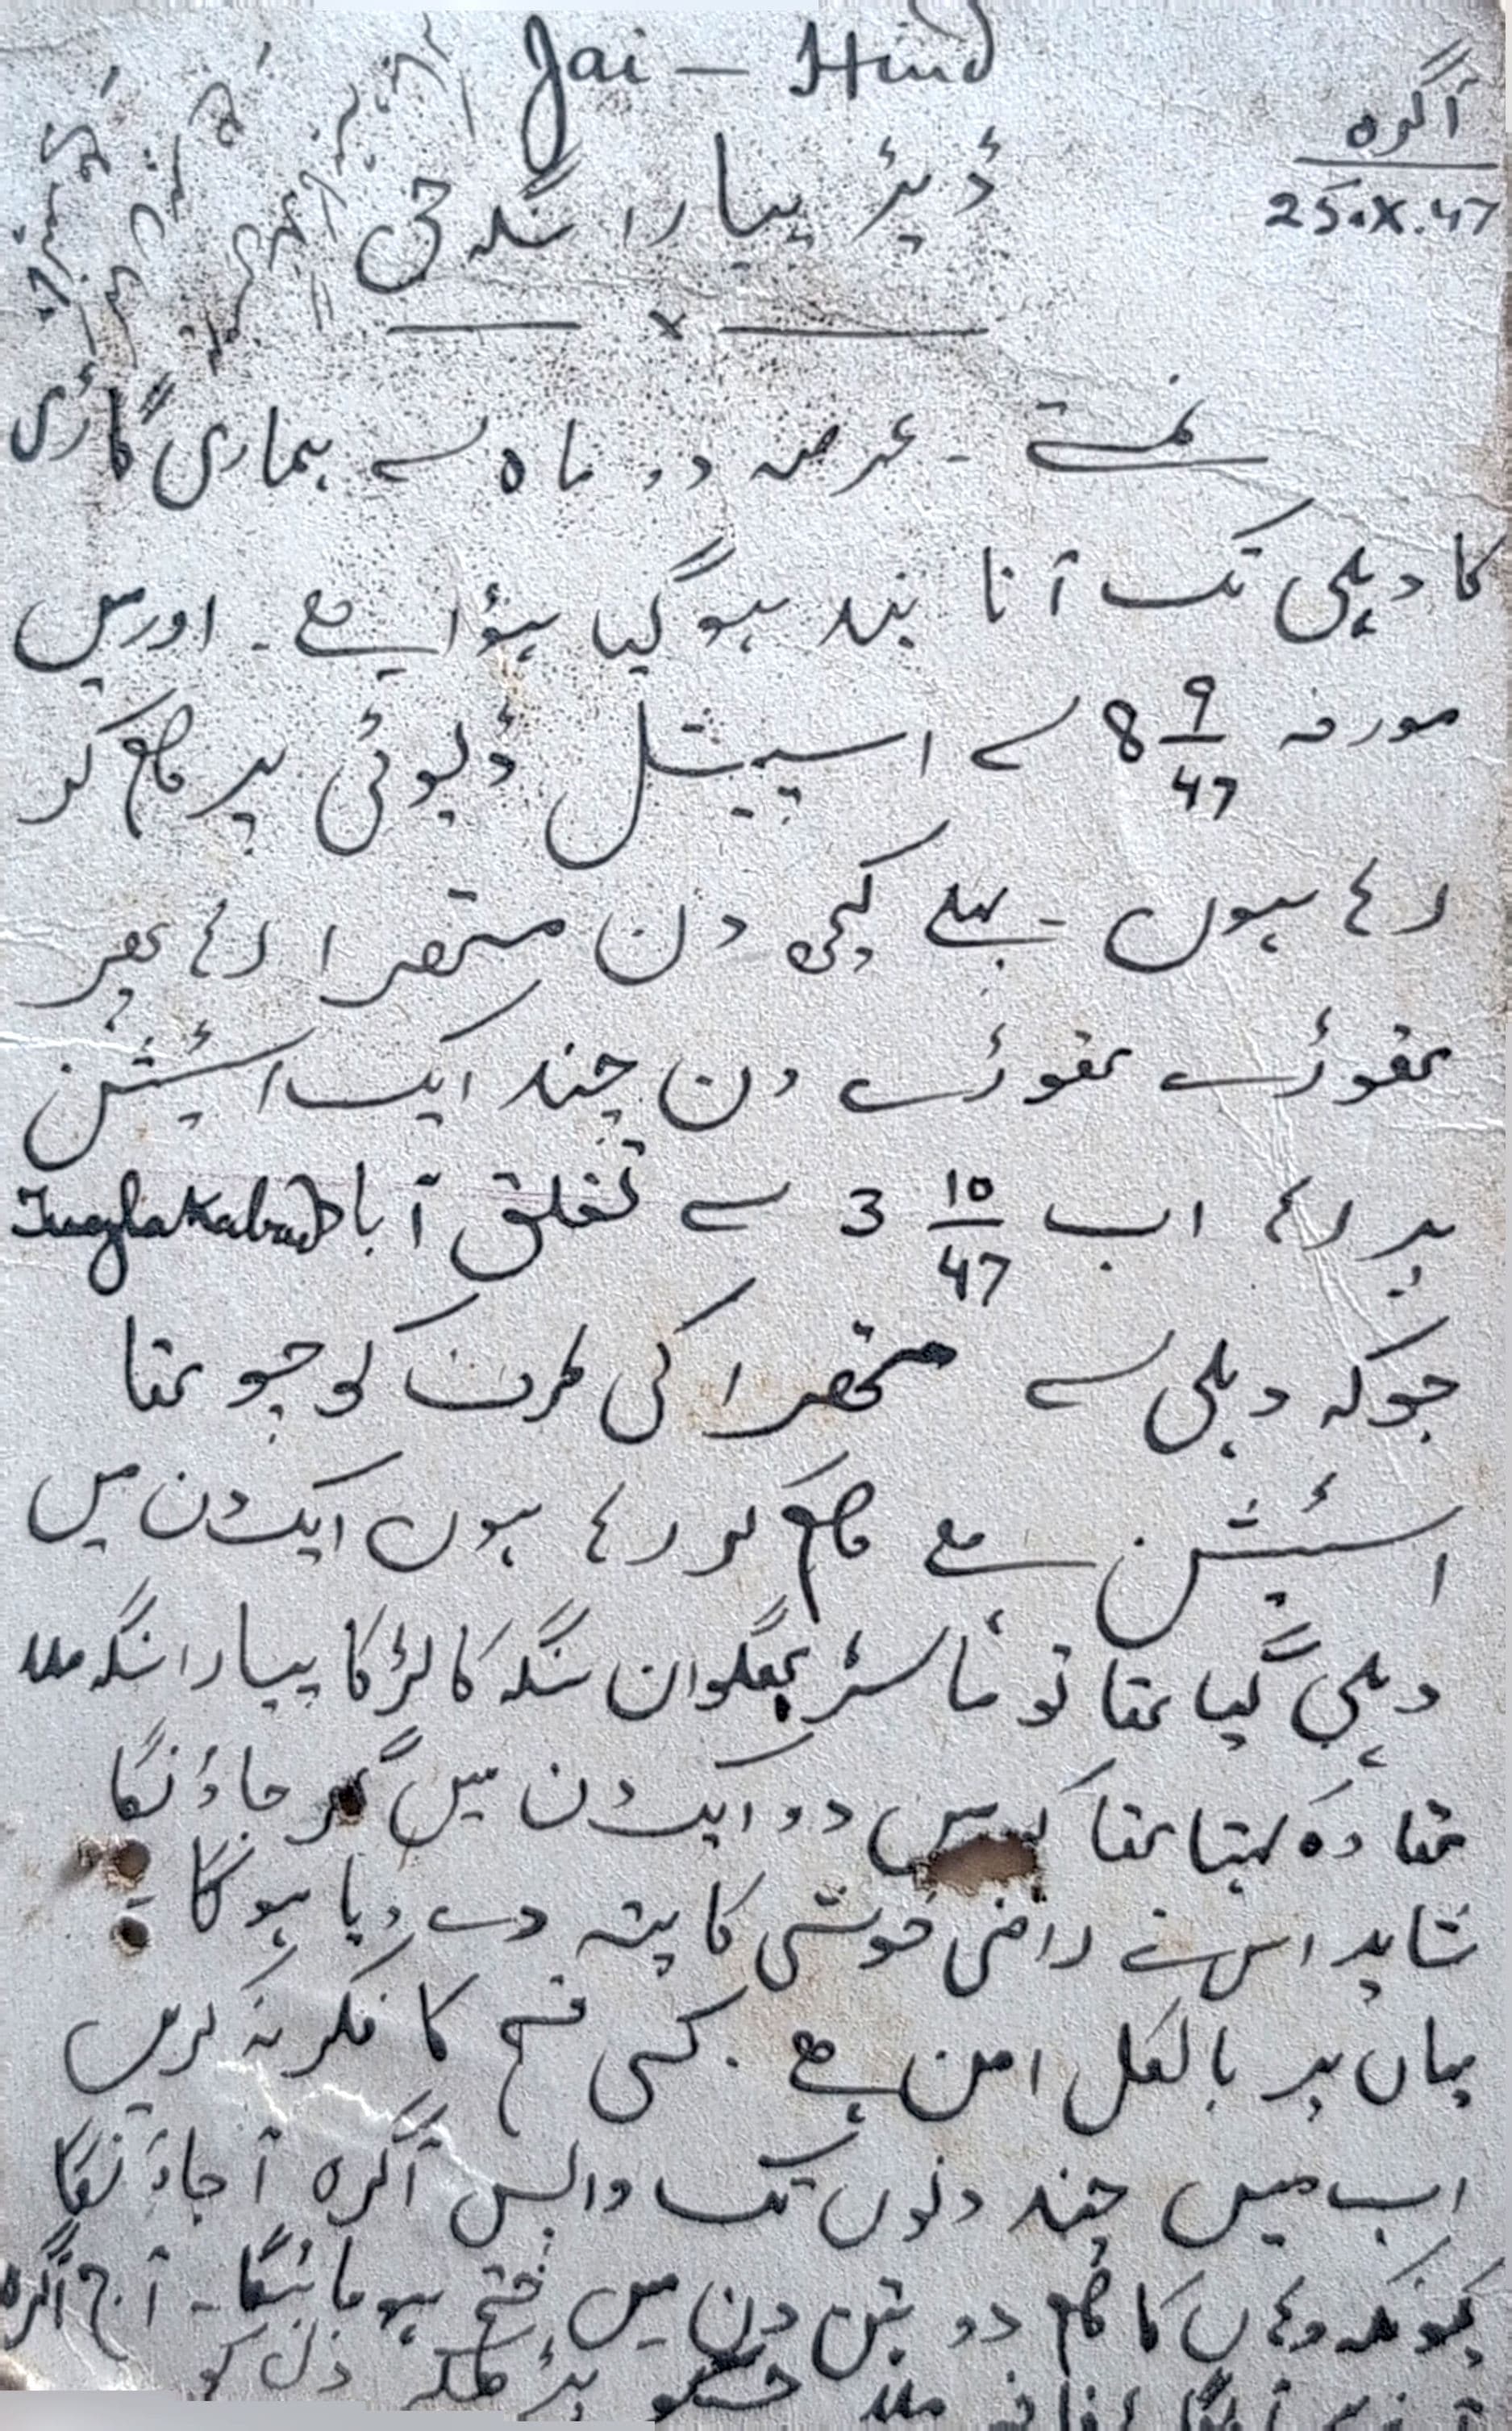 Jai — Hind
آگرہ
25.X.47
ڈیئر پیارا سنگھ جی
نمستے - عرصہ دو ماہ سے ہماری گاڑی
کا دہلی تک آنا بند ہوگیا ہؤا ہے - اور میں
مورخہ 8 9/47 سے اسپیشل ڈیوٹی پر کام کر
رہے ہوں - پہلے کچھ دن متھرا رہے پھر
تھوڑے تھوڑے دن چند ایک اسٹیشن
پر رہے اب 3 10/47 سے تغلق آباد Tuglakabad
جوکہ دہلی سے متھرا کی طرف کو چوتھا
اسٹیشن ہے کام کر رہے ہوں ایک دن میں
دہلی گیا تھا تو ماسٹر بھگوان سنگھ کا لڑکا پیارا سنگھ ملا
تھا وہ کہتا تھا کہ میں دو ایک دن میں گھر جاؤنگا
شاید اس نے راضی خوشی کا پتہ دے دیا ہوگا -
یہاں پر بالکل امن ہے . کسی قسم کا فکر نہ کریں
اب میں چند دنوں تک واپس آگرہ آجاؤنگا
کیونکہ وہاں کا کام دو تین دن میں ختم ہو جائیگا - آج آگرہ
ملا جسکو پڑھکر دل کو